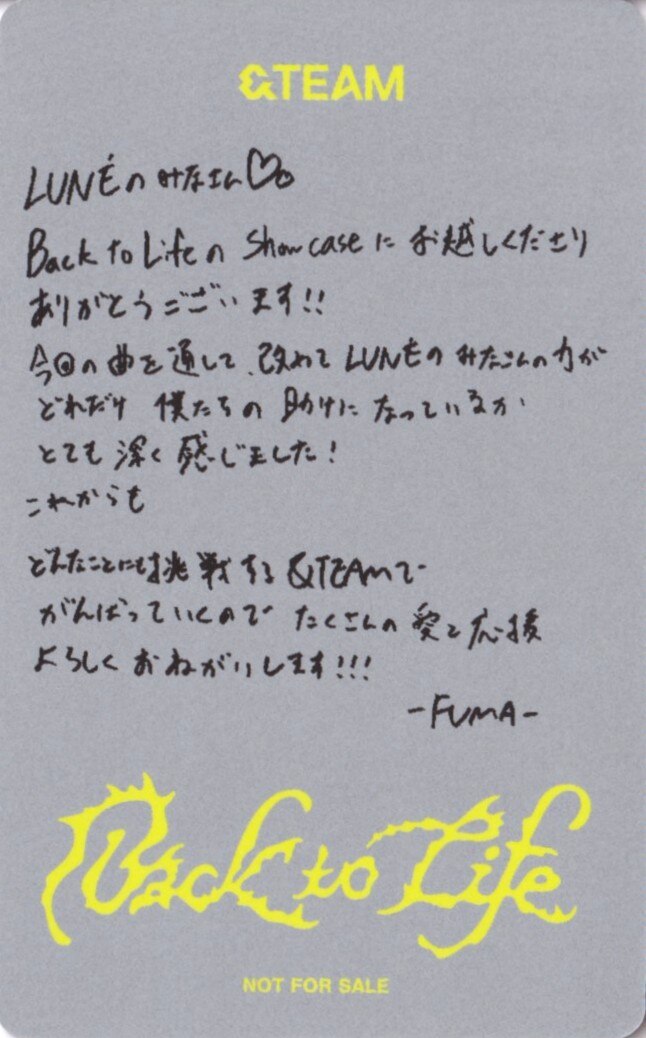 &TEAM
LUNÉのみなさん♡
Back to Lifeの Showcaseに お越しくださり
ありがとうございます!!
今回の曲を通して、改めて LUNÉのみなさんの力が
どれだけ 僕たちの 助けに なっているか
とても 深く 感じました!
これからも
どんなことにも挑戦する &TEAMで
がんばっていくので たくさんの 愛と応援
よろしく おねがいします!!!
-FUMA-
Back to Life
NOT FOR SALE